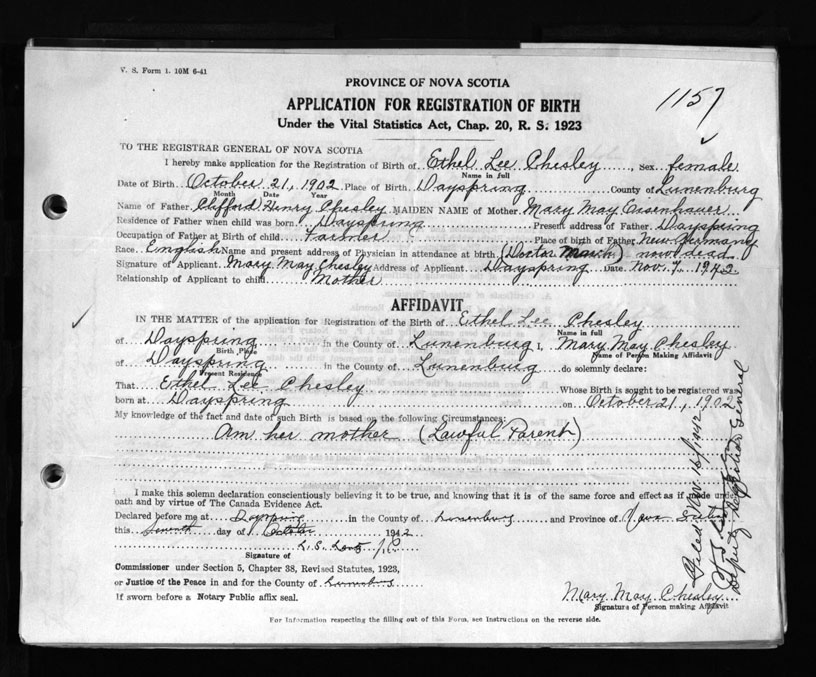 V. S. Form 1. 10M 6-41
PROVINCE OF NOVA SCOTIA
1157
APPLICATION FOR REGISTRATION OF BIRTH
Under the Vital Statistics Act, Chap. 20, R. S. 1923
TO THE REGISTRAR GENERAL OF NOVA SCOTIA
I hereby make application for the Registration of Birth of Ethel Lee Chesley, Sex female
Name in full
Date of Birth October 21, 1902 Place of Birth Dayspring County of Lunenburg
Month Date Year
Name of Father Clifford Henry Chesley MAIDEN NAME of Mother Mary May Eisenhauer
Residence of Father when child was born Dayspring Present address of Father Dayspring
Occupation of Father at Birth of child Farmer Place of birth of Father New Germany
Race English Name and present address of Physician in attendance at birth (Doctor March) now dead
Signature of Applicant Mary May Chesley Address of Applicant Dayspring Date Nov. 7, 1942
Relationship of Applicant to child Mother
AFFIDAVIT
IN THE MATTER of the application for Registration of the Birth of Ethel Lee Chesley
Name in full
of Dayspring in the County of Lunenburg I, Mary May Chesley
Birth Place Name of Person Making Affidavit
of Dayspring in the County of Lunenburg do solemnly declare:
Present Residence
That Ethel Lee Chesley Whose Birth is sought to be registered was
born at Dayspring on October 21, 1902
My knowledge of the fact and date of such Birth is based on the following Circumstances:
Am her mother (Lawful Parent)
I make this solemn declaration conscientiously believing it to be true, and knowing that it is of the same force and effect as if made under
oath and by virtue of The Canada Evidence Act.
Declared before me at Dayspring in the County of Lunenburg and Province of Nova Scotia
this Seventh day of October 1942
L. S. J.P.
Signature of
Commissioner under Section 5, Chapter 38, Revised Statutes, 1923,
or Justice of the Peace in and for the County of Lunenburg
If sworn before a Notary Public affix seal.
Mary May Chesley
Signature of Person making Affidavit
For Information respecting the filling out of this Form, see Instructions on the reverse side.
Filed Nov. 16/1942
Deputy Registrar General